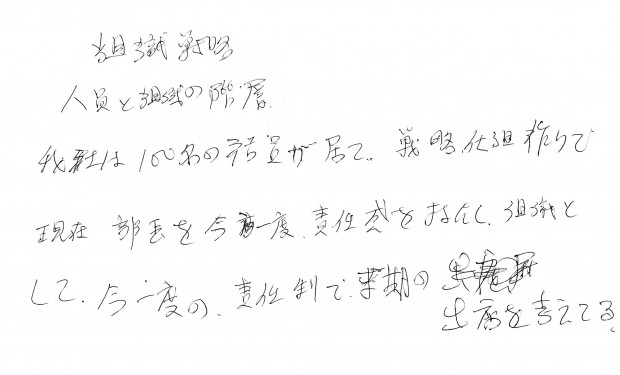 組織戦略
人員と組織の階層
我社は100名の 員が居て、戦略仕組作りで
現在 部長を今一度、責任 を し、組織と
して、今一度の、責任制で、来期の
出 を考えてる。